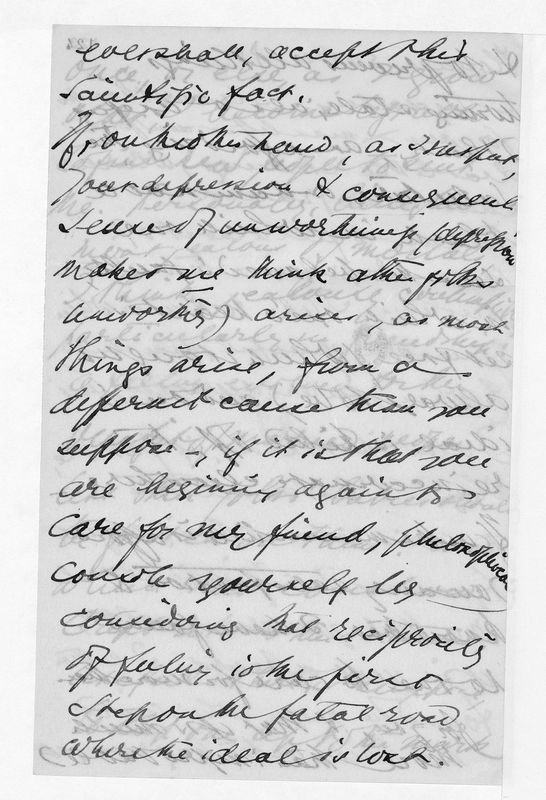 ever shall, accept this
scientific fact.
If, on the other hand, as I suspect,
your depression & consequent
sense of unworthiness (depression
makes me think other folks
unworthy) arises, as most
things arise, from a
different cause than you
suppose –, if it is that you
are begining again to
care for my friend, philosophical
console yourself by
considering that reciprocity
of feeling is the first
step on the fatal road
where the ideal is lost.